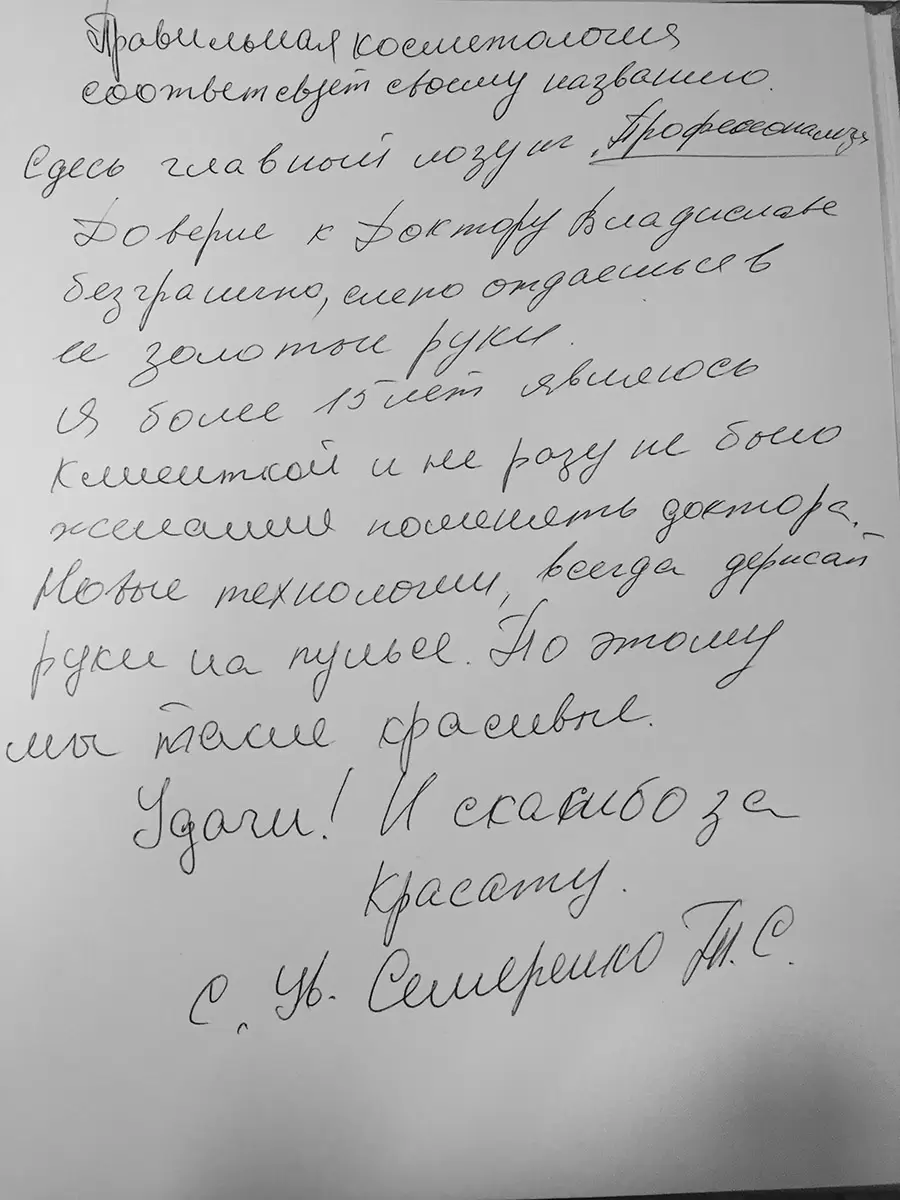 Правильная косметология
соответсвует своему названию.
Сдесь главный лозунг "Профессионализм
Доверие к Доктору Владиславе
безгранично, слепо отдаешься в
ее золотые руки.
Я более 15 лет являюсь
Клиенткой и не разу не было
желания поменять доктора.
Новые технологии, всегда держат
руки на пульсе. По этому
мы такие красивые.
Удачи! И спасибо за
Красату.
С. Ув. Семеренко Т. С.